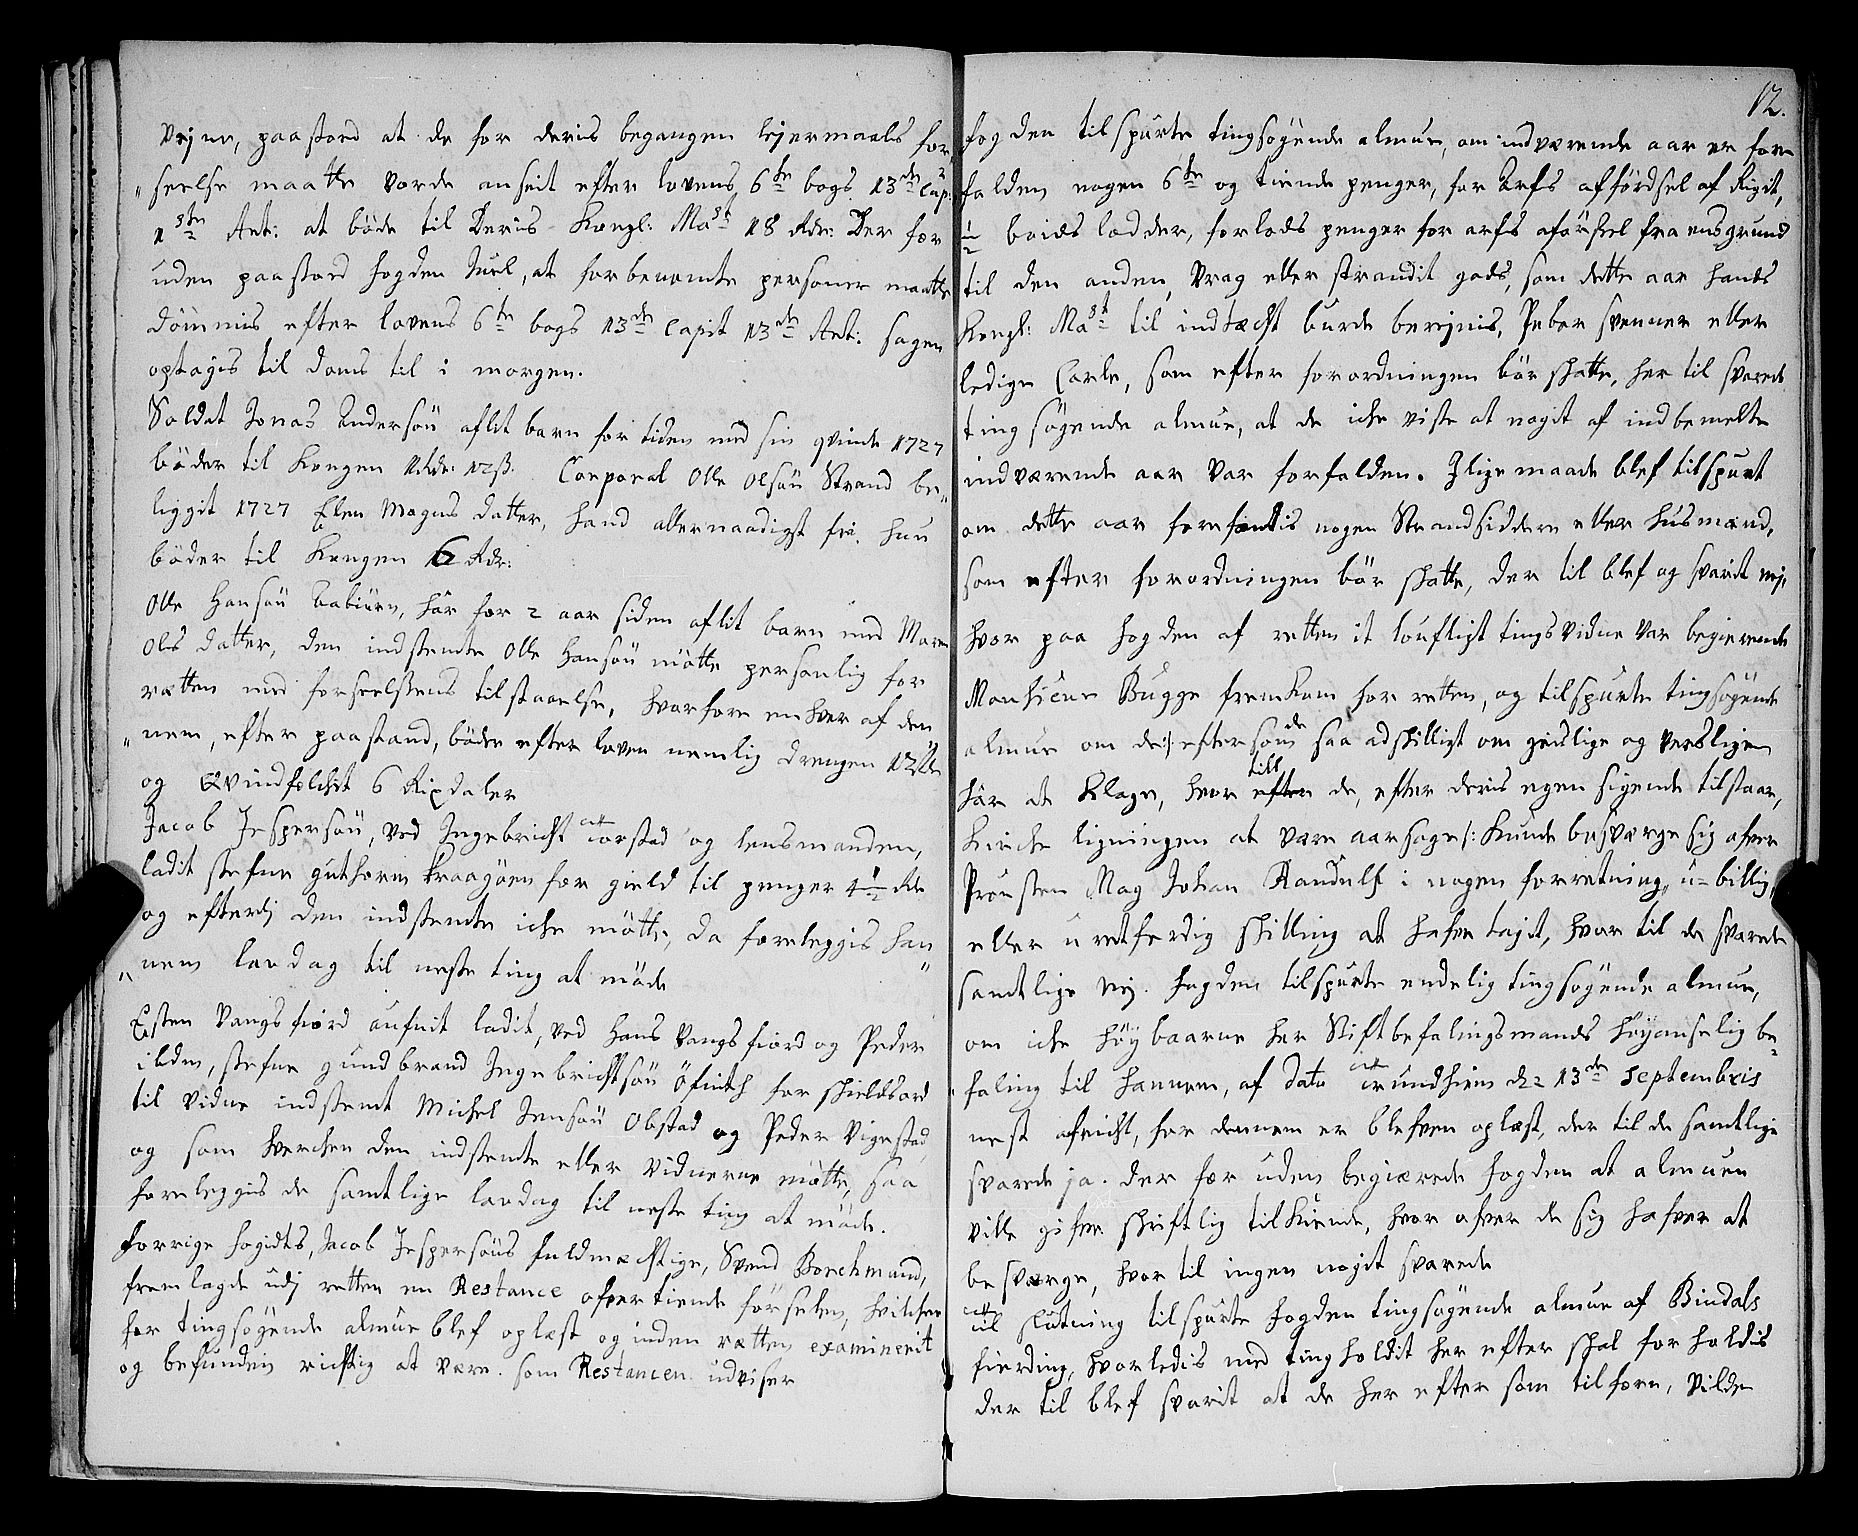 Vejne, paastoed at de for deris begangen lejermaals for„
„seelse maatte vorde anseit efter lovens 6te bogs 13de Cap:
1ste Art: at böde til Deris Kongl: Maست 18 Rdr: Der for
uden paastoed fogden Juel, at forbenemte personer maatte
dömmis efter lovens 6te bogs 13de Capit 13de Art: sagen
optagis til doms til i morgen.
Soldat Jonas Andersön aflit barn for tiden med sin qvinde 1727
böder til Kongen 1 Rdr: 12 ß. Corporal Olle Olsön Strand be„
liggit 1727 Elen Magnus datter, hand allernaadigst fri, hun
böder til Kongen 6 Rdr:
Olle Hansön har for 2 aar siden aflit barn med Maren
Ols datter, den indstemte Olle Hansön mötte personlig for
rætten med forseelsens tilstaaelse, hvorfore enhver af den
„nem, efter paastand, böder efter loven nemlig drengen 12 Rdr
og Qvindfolchit 6 Rixdaler
Jacob Jespersön, ved Ingebricht Torstad og lensmanden,
ladit stefne guthorm Kraagöen for gield til penger 4½ Rdr
og efterdj den indstemte iche mötte, da foreleggis han
„nem lavdag til neste ting at möde
Esten Vangsfiord ladit, ved Hans Vangsfiord og Peder
ilden, stefne gundbrand Ingebrichtsön for shieldsord
til vidne indstemt Michel Jensön Obstad og Peder Vigestad,
og som hverchen den indstemte eller vidnerne mötte, saa
foreleggis de samtlige lavdag til neste ting at möde.
Forrige fogidts, Jacob Jespersöns fuldmæchtige, Svend Borchmand,
fremlagde udj retten en Restance ofver tiende förselen, hvilchen
for tingsögende almue blef oplæst og inden rætten examinerit
og befunden richtig at være som Restancen udviser

12.
fogden tilspurte tingsögende almue, om indværende aar er for
falden nogen 6te og tiende penger, for Arfs affördsel af Rigit,
½ boids lodder, forlods penger for arfs aförsel fra ens grund
til den anden, vrag eller strandit gods, som dette aar hands
Kongl: Mast til indtæcht burde berejnis, Peber svenner eller
ledige Carle, som efter forordningen bör shatte, her til svarede
tingsögende almue, at de iche viste at nogit af indbemelte
indværende aar var forfalden. Ilige maade blef tilspurt
om dette aar forefandtis nogen Strandsiddere eller husmænd,
som efter forordningen bör shatte, der til blef og svarit nej,
hvor paa fogden af retten it loufligt tingsvidne var begierende
Monsieur Bugge fremkom for retten, og tilspurte tingsögende
almue om de /: eftersom de saa adshilligt om geislige og versligen
har at klage, hvor till de, efter deris egen sigende tilstaar,
Kirche ligningen at være aarsage :/ kunde besværge sig ofver
Prousten Mag Johan Randulf i nogen forretning, u-billig,
eller uretferdig shilling at hafve tagit, hvor til de svarede
samtlige nej. Fogden tilspurte endelig tingsögende almue,
om iche höybaarne Her Stiftbefalingsmands höyanselig be„
„faling til hannem, af dato Trundhiem d: 13de Septembris
nest afvicht, for dennem er blefven oplæst, der til de samtlige
svarede ja. Der for uden begiærede fogden at almuen
ville gifve shriftlig tilkiende, hvor ofver de sig hafver at
besværge, hvor til ingen nogit svarede
Til slutning tilspurte fogden tingsögende almue af Bindals
fierding, hvorledis med tingholdit her efter shal forholdis
der til blef svarit at de her efter som tilforn, vilde